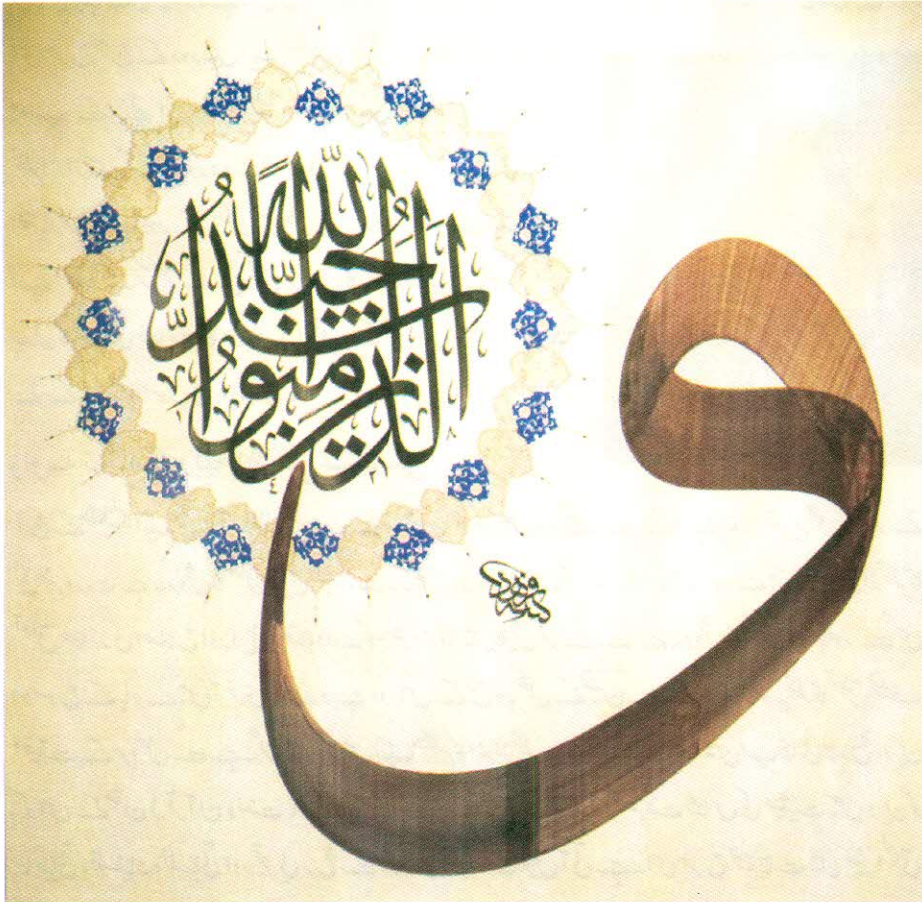 وَالَّذينَ آمَنُوا أَشَدُّ حُبّاً لِلّهِ